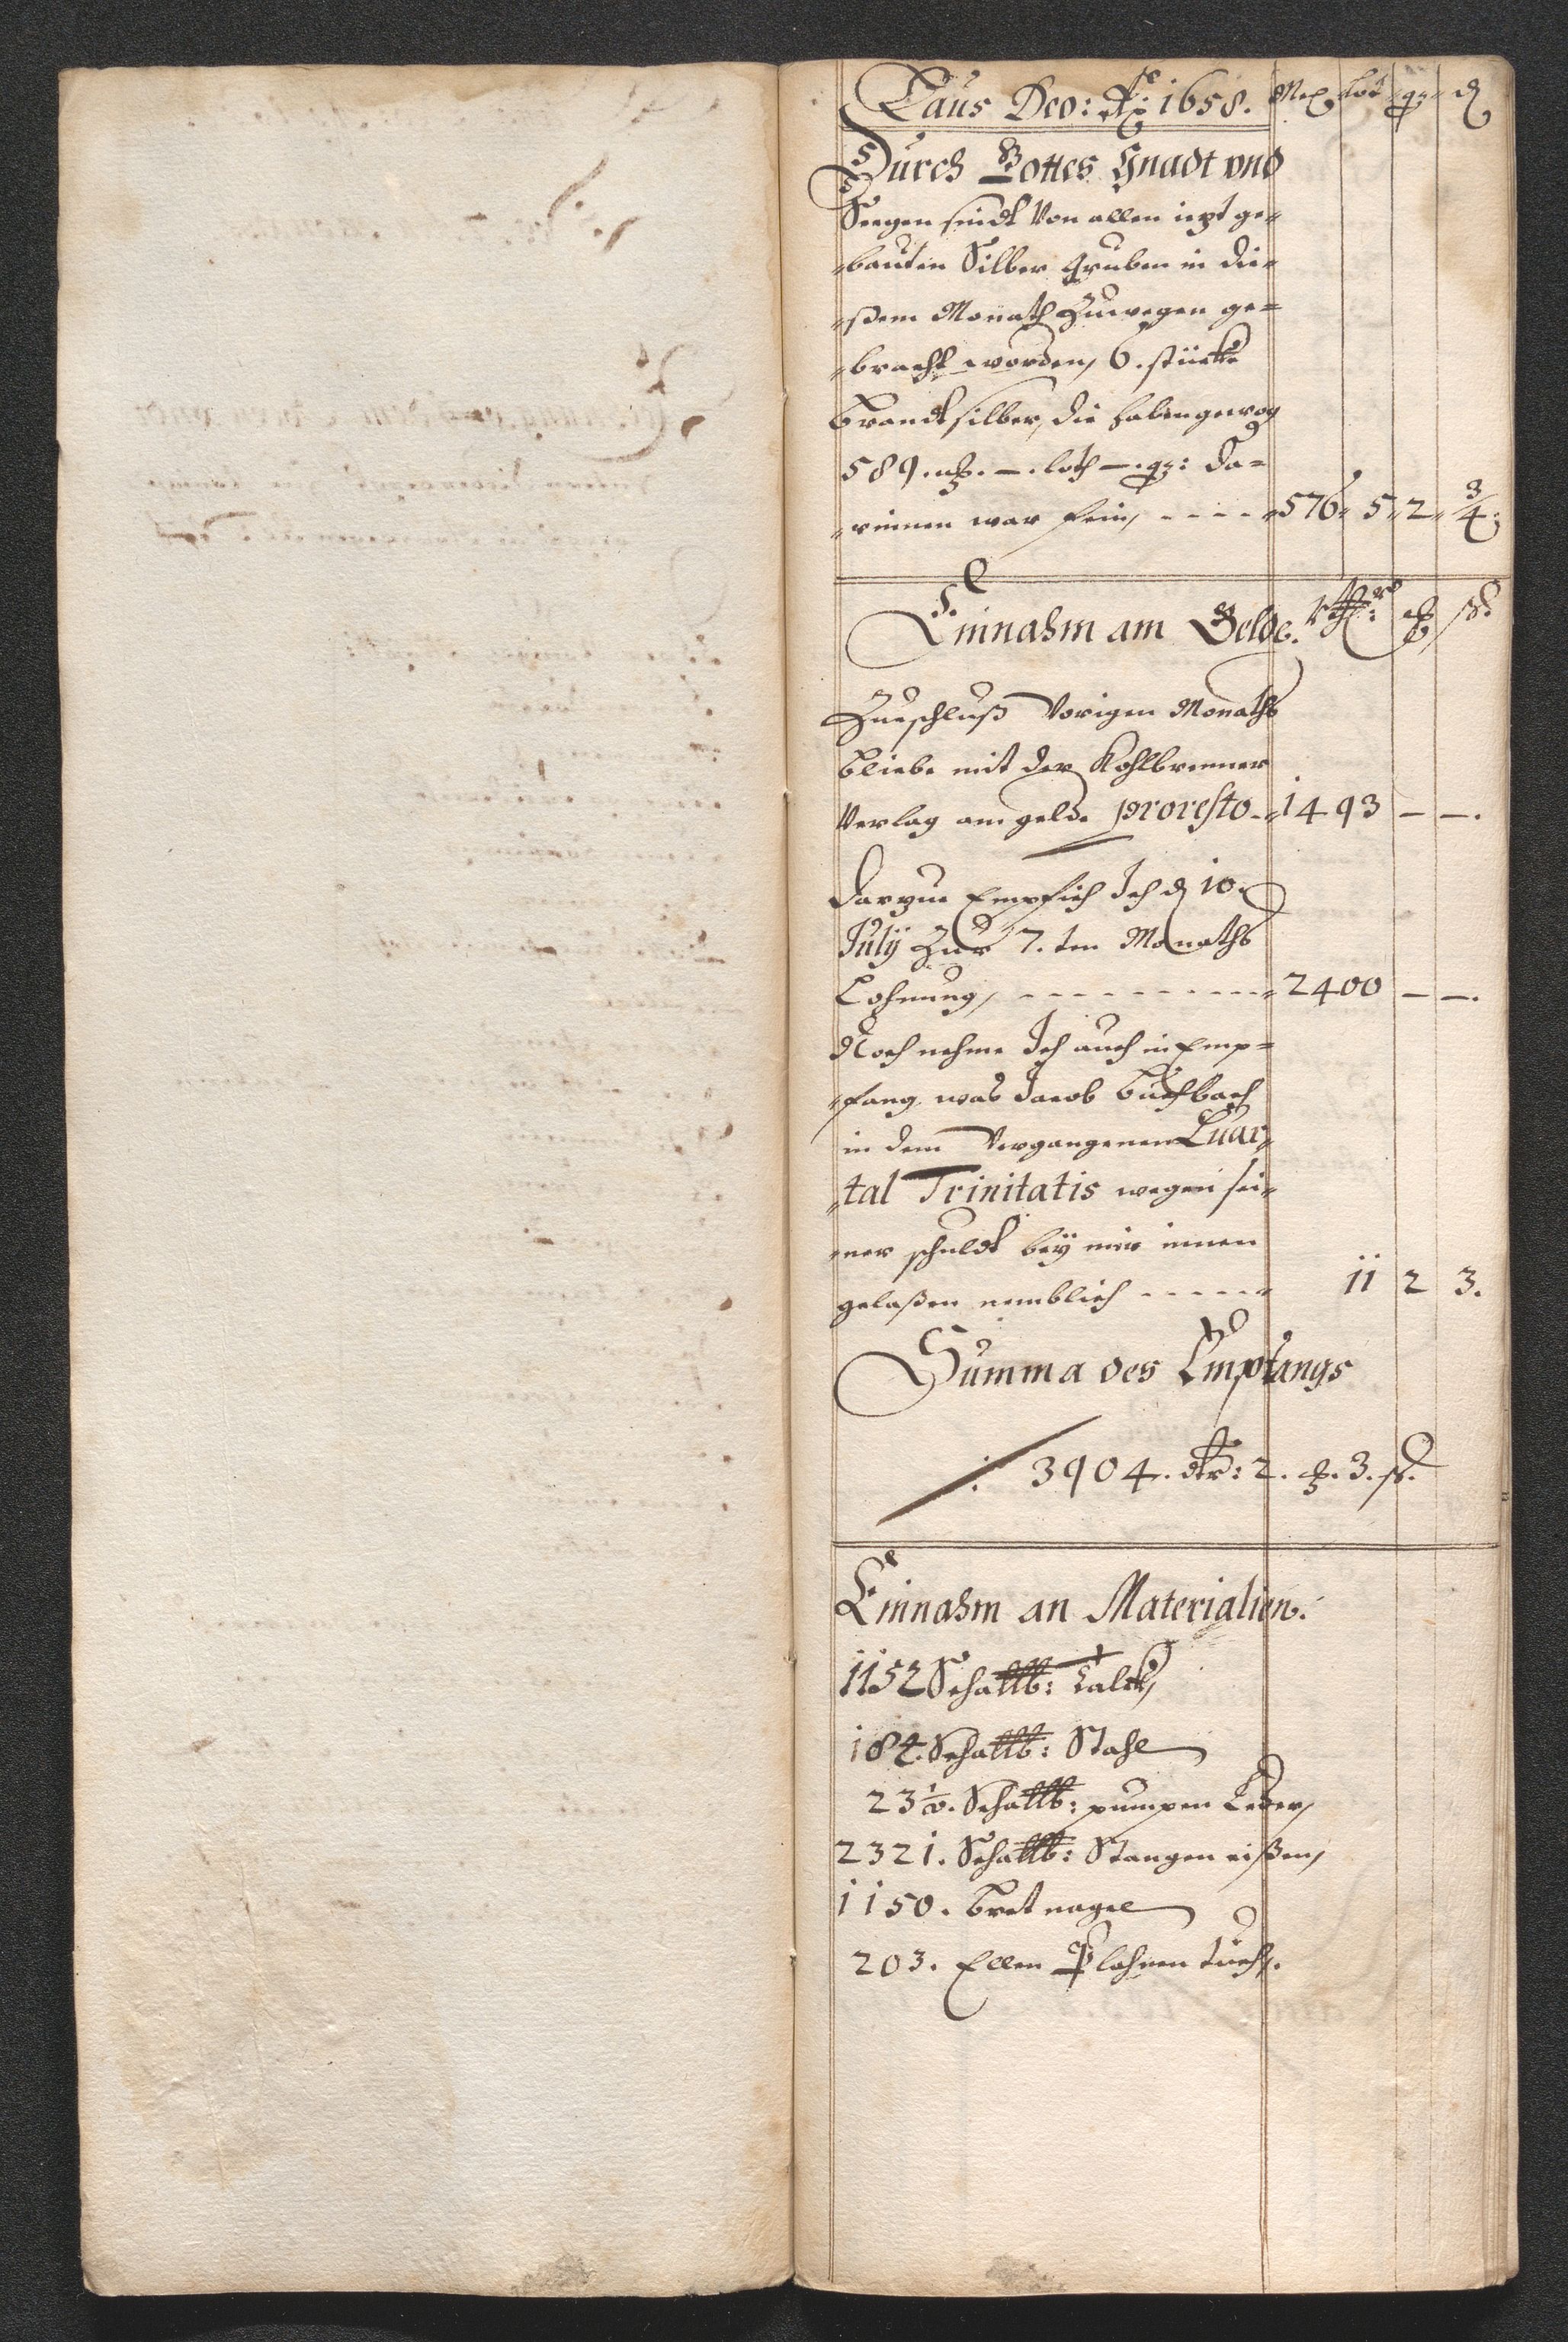 Laus Deo: Ao: 1658. Mrck Lot qz d
Durch Gottes Gnadt vnd
Seegen sindt Von allen iezt ge-
-bauten Silber gruben in die-
-ßem Monath Zuwegen ge-
-bracht worden, 6. stücke
brandtsilber, die haben gewog
589. mk. —. loth —. qz: da-
-rinnen war fein, - - - - 576 5 2 3/4.
Einnahm am Gelde. mk ß
Zueschluß Vorigen Monaths
bliebe mit der Kohlbrenner
Verlag am gelde pro resto - 1493 — —.
darzue Empfieh Ich d 10
Julÿ Zur 7.ten Monaths
Lohnung, - - - - - - - - - 2400 — —.
Noch nehme Ich auch in Emp-
-fang was Jacob buchbach
in dem Vergangenen Quar-
-tal Trinitatis wegen sei-
-ner schuldt beÿ mir innen
gelaßen nemblich - - - - - 11 2 3.
Summa des Empfangs
3904. dlr: 2. mk. 3. ß.
Einnahm an Materialien.
1152 Schallb: Talck,
184. Schallb: Stahl
23 1/2. Schallb: pumpen Leder,
2321. Schallb: Stangen eißen,
1150. bret nagel
203. Ellen Plahnen tuch.